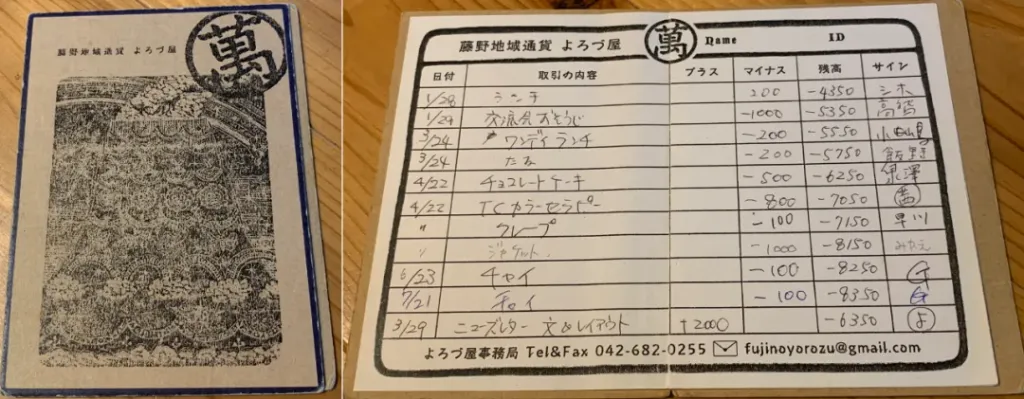 藤野地域通貨 よろづ屋
萬
藤野地域通貨 よろづ屋 萬 Name ID
日付 取引の内容 プラス マイナス 残高 サイン
1/28 ランチ 200 -4350 シホ
1/29 交流会おそうじ -1000 -5350 高橋
3/24 ワンデイランチ -200 -5550
3/24 -200 -5750 飯野
4/22 チョコレートケーキ -500 -6250 泉澤
4/22 TCカラーセラピー -800 -7050
〃 クレープ -100 -7150 早川
〃 ジャケット -1000 -8150 みかえ
6/23 チャイ -100 -8250
7/21 チャイ -100 -8350
3/29 ニューズレター 文&レイアウト +2000 -6350 よ
よろづ屋事務局 Tel&Fax 042-682-0255 fujinoyorozu@gmail.com